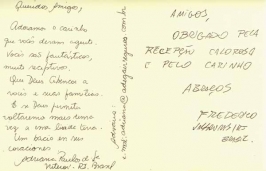 Queridos Amigos,
Adoramos o carinho
que vocês deram a gente.
Vocês são fantásticos,
muito receptivos.
Que Deus abençoe a
vocês e suas famílias.
E se Deus permitir
voltaremos mais uma
vez a essa linda terra.
Um beijo em seus
corações
Adriana Paula
Niterói - RJ. Brasil
AMIGOS,
OBRIGADO PELA
RECEPÇÃO CALOROSA
E PELO CARINHO
ABRAÇOS
FREDERICO
BRASIL